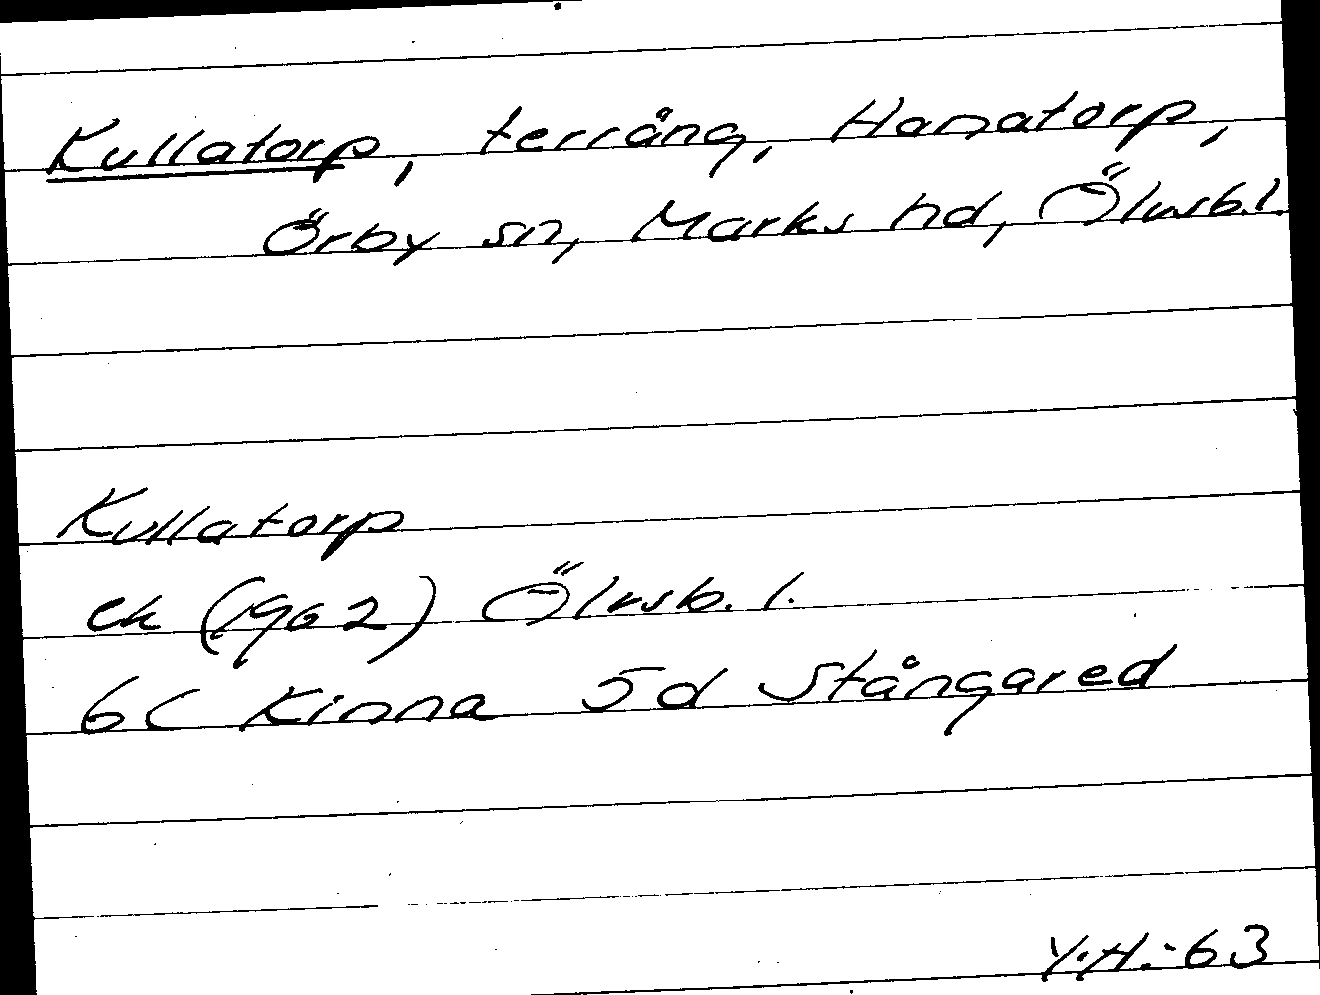 Kullatorp, terräng, Hanatorp,
Örby sn, Marks hd, Älvsb.l.
Kullatorp
ek (1962) Älvsb. l.
6C Kinna 5d Stångared
Y.H.-63